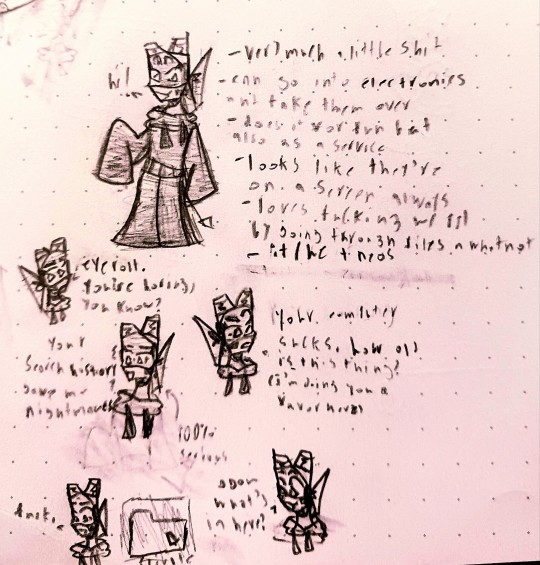 hi!
- very much a little shit
- can go into electronics
and take them over
- does it for fun but
also as a service
- looks like they're
on a screen always
- loves fucking w/ ppl
by going through files n whatnot
-
eyeroll.
You're boring,
you know?
Your
search history
gave me
nightmares
100%
serious
Your computer
sucks. how old
is this thing?
(I'm doing you a
favor here)
oooh
what's
in here?